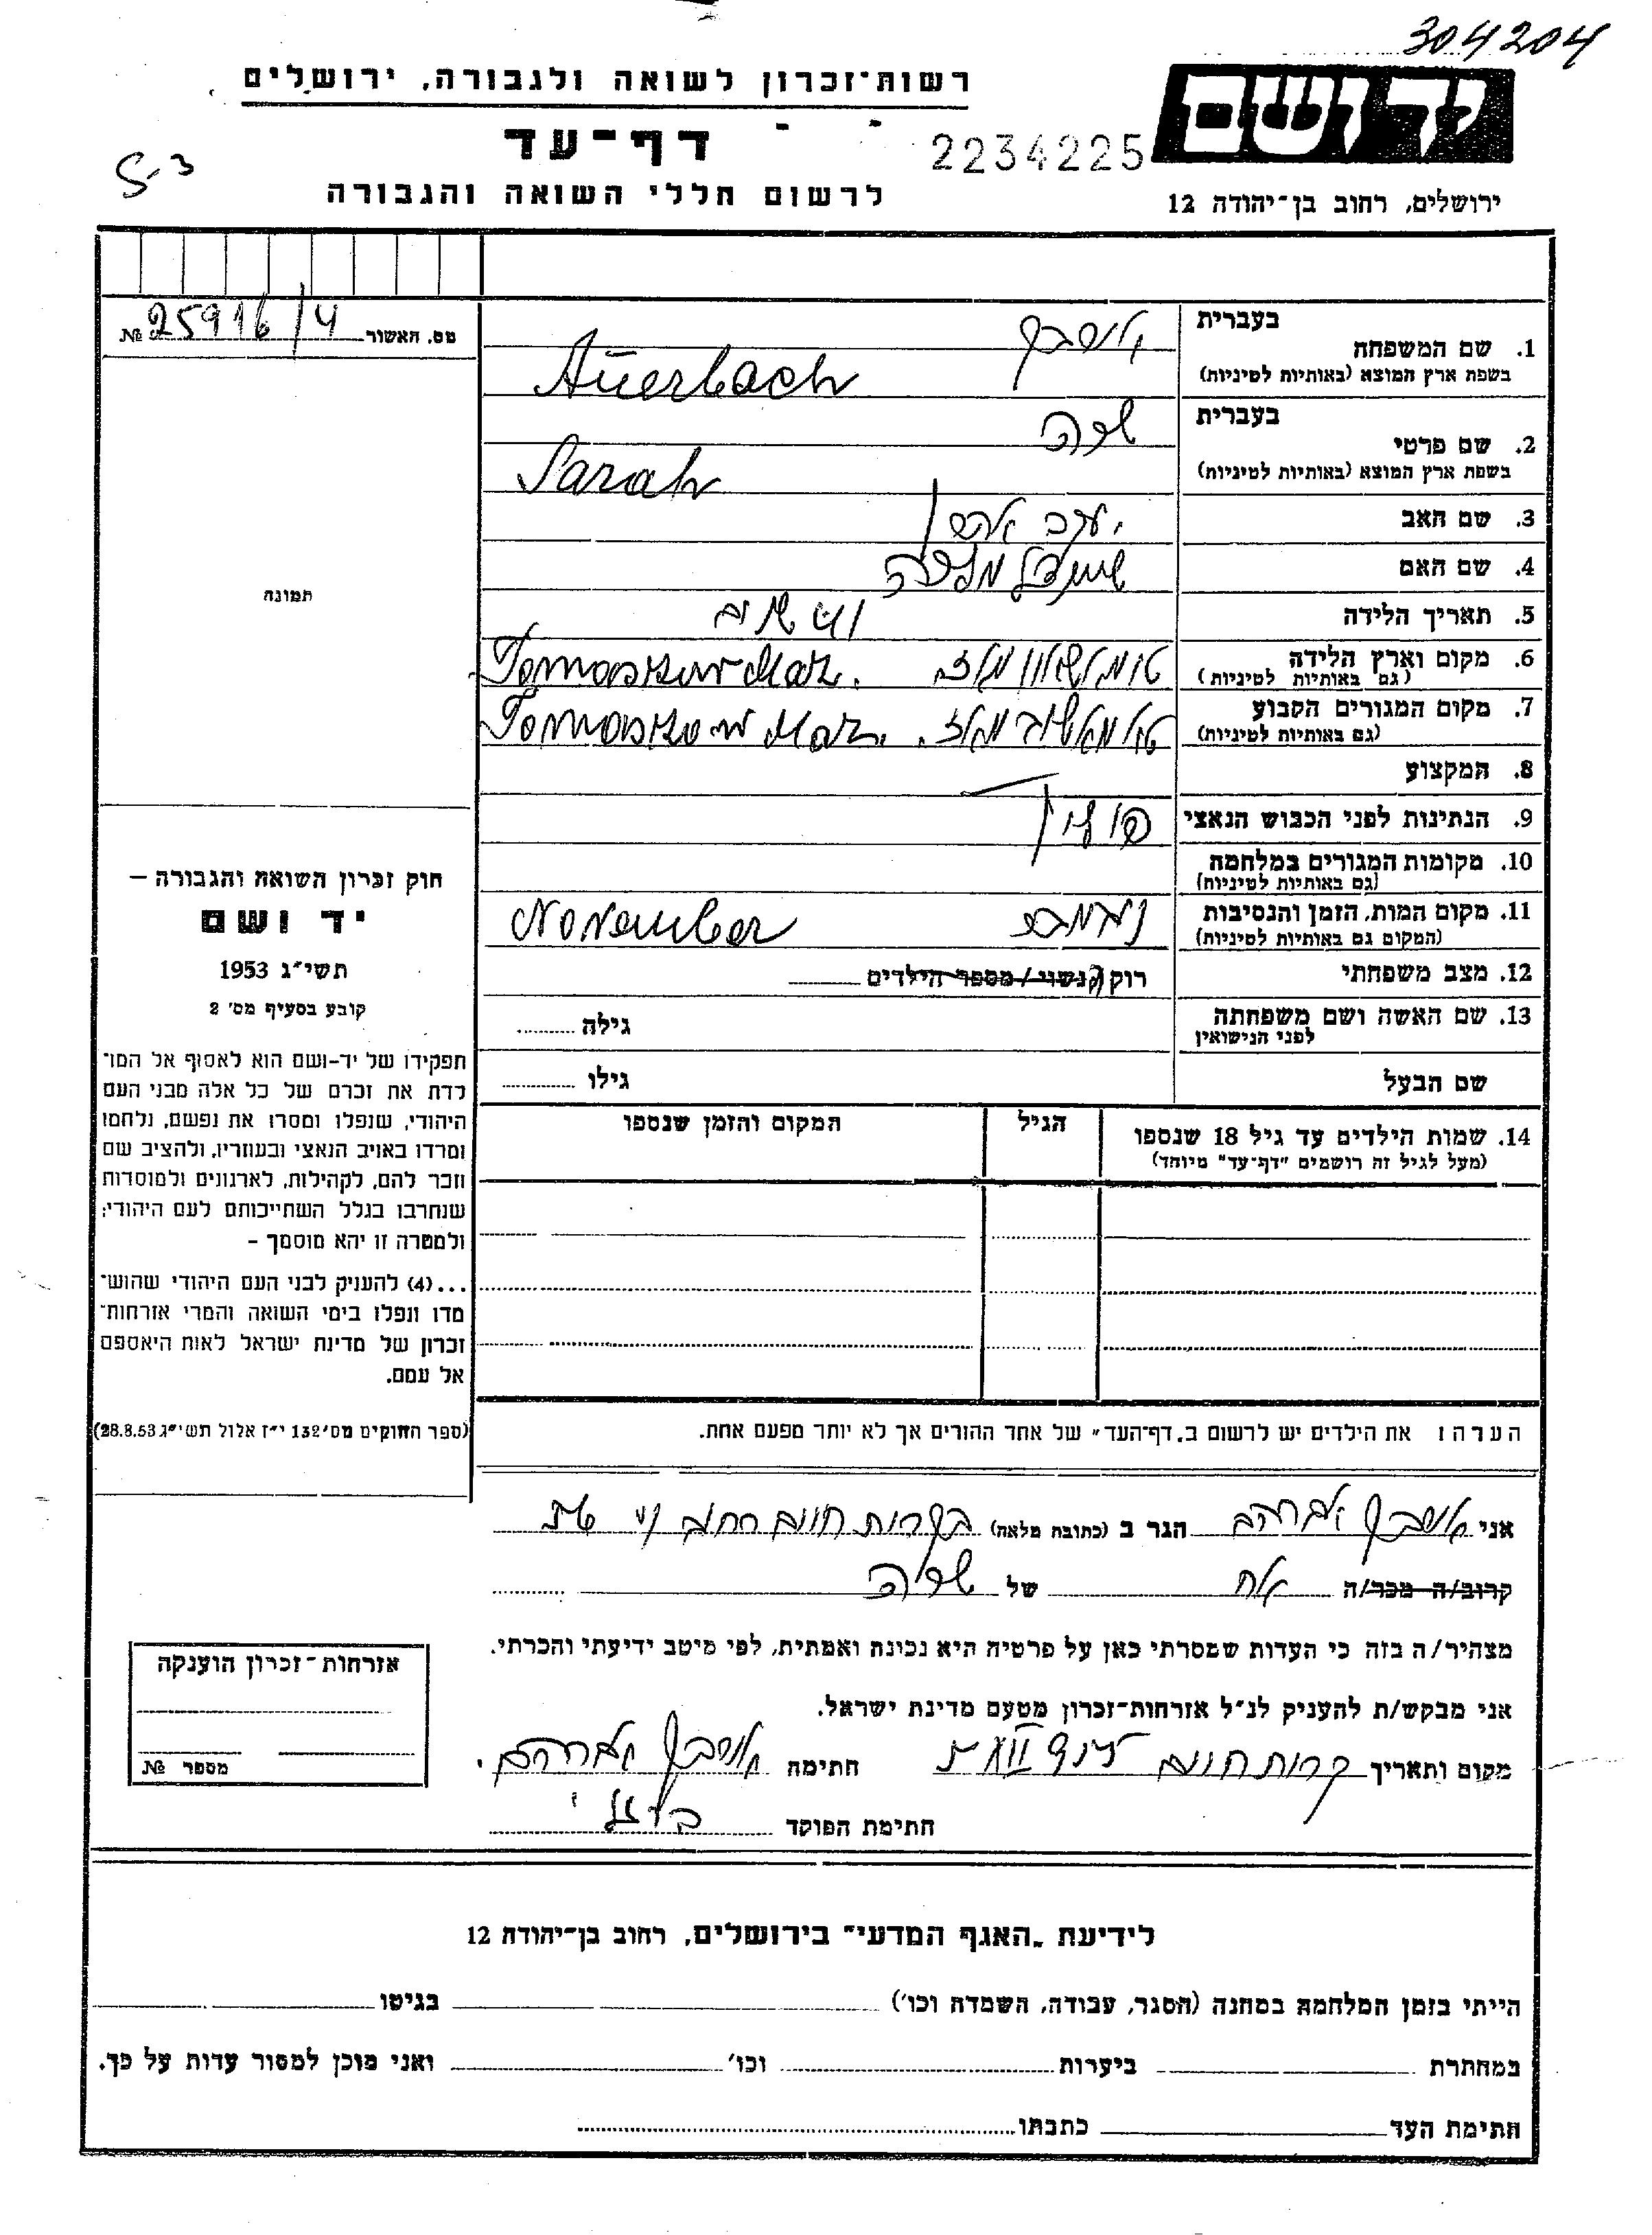 304204
רשות־זכרון לשואה ולגבורה, ירושלים
יד ושם
דף־עד
2234225
S-3
לרשום חללי השואה והגבורה
ירושלים, רחוב בן־יהודה 12
מס. האשור 25916/4 №
תמונה
1. שם המשפחה
בעברית אוירבך
בשפת ארץ המוצא (באותיות לטיניות) Auerbach
2. שם פרטי
בעברית שרה
בשפת ארץ המוצא (באותיות לטיניות) Sarah
3. שם האב יעקב אהרן
4. שם האם
5. תאריך הלידה
6. מקום וארץ הלידה
(גם באותיות לטיניות) Tomaszow Maz.
7. מקום המגורים הקבוע
(גם באותיות לטיניות) Tomaszow Maz.
8. המקצוע
9. הנתינות לפני הכבוש הנאצי פולין
10. מקומות המגורים במלחמה
(גם באותיות לטיניות)
11. מקום המות, הזמן והנסיבות
(המקום גם באותיות לטיניות) November
12. מצב משפחתי רוק/נשוי/מספר הילדים
13. שם האשה ושם משפחתה
לפני הנישואין גילה
שם הבעל גילו
14. שמות הילדים עד גיל 18 שנספו
(מעל לגיל זה רושמים "דף־עד" מיוחד)
הגיל
המקום והזמן שנספו
חוק זכרון השואה והגבורה –
יד ושם
תשי"ג 1953
קובע בסעיף מס' 2
תפקידו של יד-ושם הוא לאסוף אל המו־
לדת את זכרם של כל אלה מבני העם
היהודי, שנפלו ומסרו את נפשם, נלחמו
ומרדו באויב הנאצי ובעוזריו, ולהציב שם
וזכר להם, לקהילות, לארגונים ולמוסדות
שנחרבו בגלל השתייכותם לעם היהודי;
ולמטרה זו יהא מוסמך –
...(4) להעניק לבני העם היהודי שהוש־
מדו ונפלו בימי השואה והמרי אזרחות־
זכרון של מדינת ישראל לאות היאספם
אל עמם.
(ספר החוקים מס' 132 י"ז אלול תשי"ג 28.8.53)
הערה: את הילדים יש לרשום ב„דף־העד" של אחד ההורים אך לא יותר מפעם אחת.
אני אוירבך אברהם הגר ב (כתובה מלאה) בקרית חיים רחוב
קרוב/ה מכר/ה אח של שרה
מצהיר/ה בזה כי העדות שמסרתי כאן על פרטיה היא נכונה ואמתית, לפי מיטב ידיעתי והכרתי.
אני מבקש/ת להעניק לנ"ל אזרחות־זכרון מטעם מדינת ישראל.
מקום ותאריך קרית חיים חתימה אוירבך אברהם
חתימת הפוקד
אזרחות־זכרון הוענקה
מספר №
לידיעת „האגף המדעי" בירושלים, רחוב בן־יהודה 12
הייתי בזמן המלחמה במחנה (הסגר, עבודה, השמדה וכו') בגיטו
במחתרת ביערות וכו' ואני מוכן למסור עדות על כך.
חתימת העד כתבתו